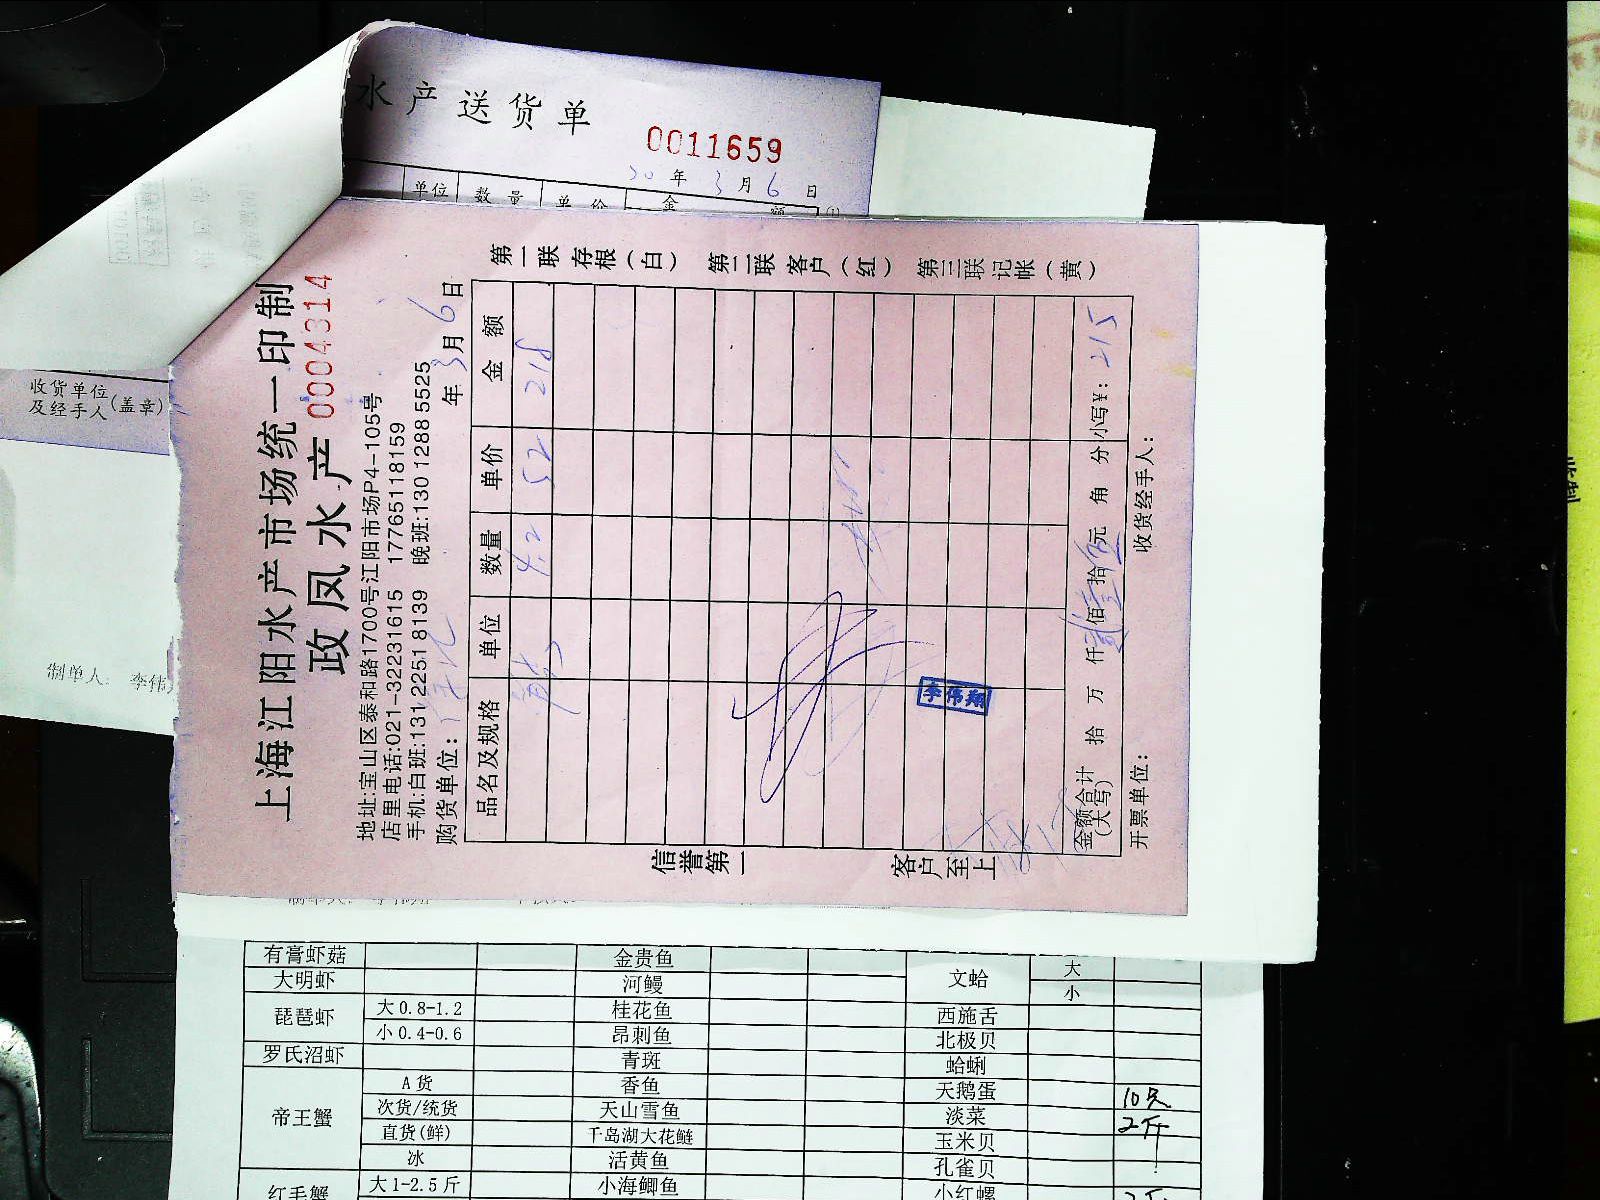 水产送货单
0011659
年 3 月 6 日
单位 数量 单价 金 额
收货单位
及经手人(盖章)
制单人: 李伟
上海江阳水产市场统一印制
政凤水产 0004314
地址:宝山区泰和路1700号江阳市场P4-105号
店里电话:021-32231615 17765118159
手机:白班:131 2251 8139 晚班:130 1288 5525
购货单位: 年 3 月 6 日
品名及规格 单位 数量 单价 金额
4.2 52 218
金额合计(大写) 拾 万 仟 贰佰 壹拾 伍元 角 分 小写¥: 215
开票单位: 收货经手人:
第一联存根(白) 第二联客户(红) 第三联记帐(黄)
信誉第一
客户至上
李伟翔
有膏虾菇 金贵鱼 文蛤 大
大明虾 河鳗 小
琵琶虾 大0.8-1.2 桂花鱼 西施舌
小0.4-0.6 昂刺鱼 北极贝
罗氏沼虾 青斑 蛤蜊
帝王蟹 A货 香鱼 天鹅蛋 10只
次货/统货 天山雪鱼 淡菜 2斤
直货(鲜) 千岛湖大花鲢 玉米贝
冰 活黄鱼 孔雀贝
红毛蟹 大1-2.5斤 小海鲫鱼 小红螺